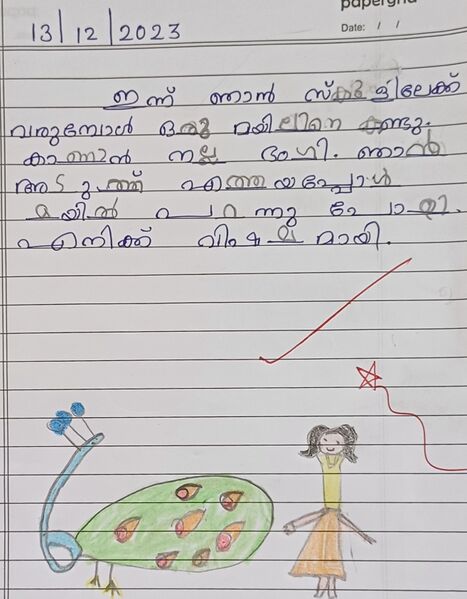 papergrid
Date: / /
13/12/2023
ഇന്ന് ഞാൻ സ്കൂളിലേക്ക്
വരുമ്പോൾ ഒരു മയിലിനെ കണ്ടു.
കാണാൻ നല്ല ഭംഗി. ഞാൻ
അടുത്ത് എത്തിയപ്പോൾ
മയിൽ പറന്നു പോയി.
എനിക്ക് വിഷമമായി.